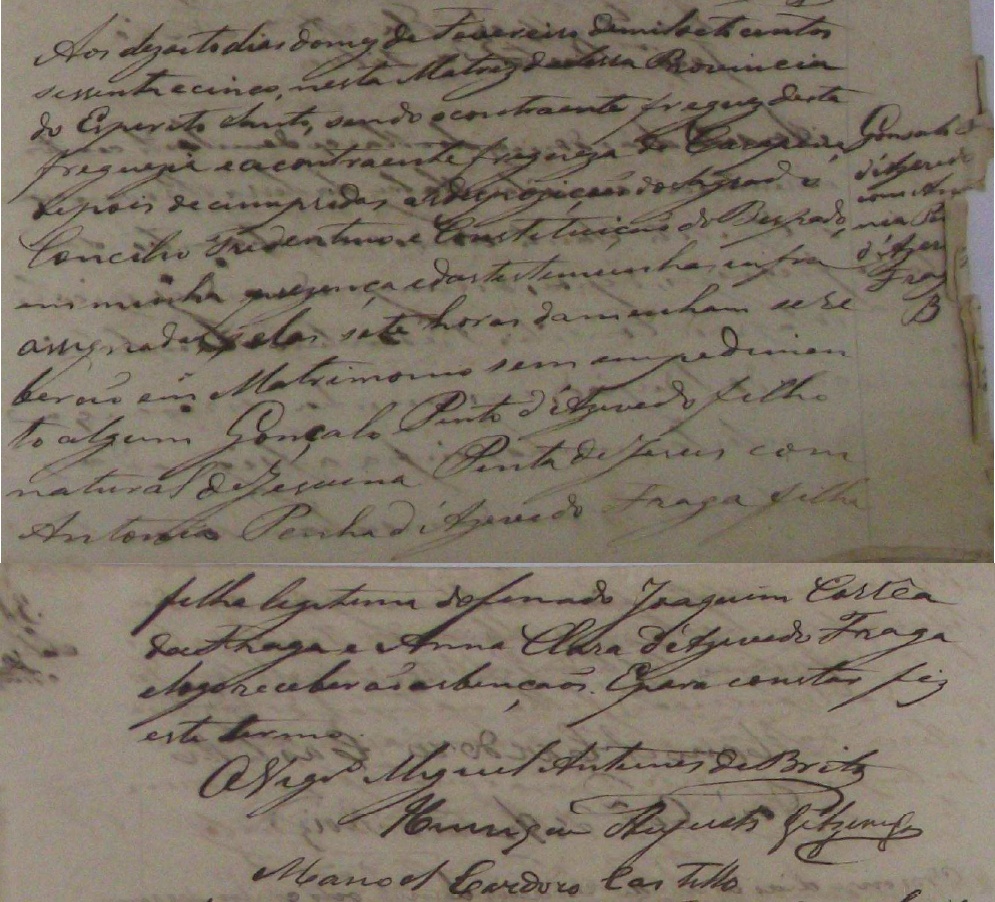 Aos dezoito dias do mez de Fevereiro de mil oito centos
sessenta e cinco, nesta Matriz da Provincia
do Espirito Santo, sendo o contraente freguez desta
freguezia e a contraente fregueza de Carapina,
depois de cumpridas as dispozições do Sagrado
Concilio Tredentino e Constituição do Bispado,
em minha presença e das testemunhas infra
assignadas, pelas sete horas da manham se re
berão em Matrimonio sem empedimen
to algum Gonçalo Pinto d'Azevedo filho
natural de Pinta de Jesus com
Antonia Penha d'Azevedo Fraga filha
Gonsalo
d'Azevedo
com An
nia Pe
d'Azev
Frag
B
filha legitima do finado Joaquim Corrêa
da Fraga e Anna Clara d'Azevedo Fraga
e logo receberão as bençãos. E para constar fiz
este termo.
O Vigr.º Miguel Antunes de Brito
Henrique Augusto
Manoel Cardoso Castello